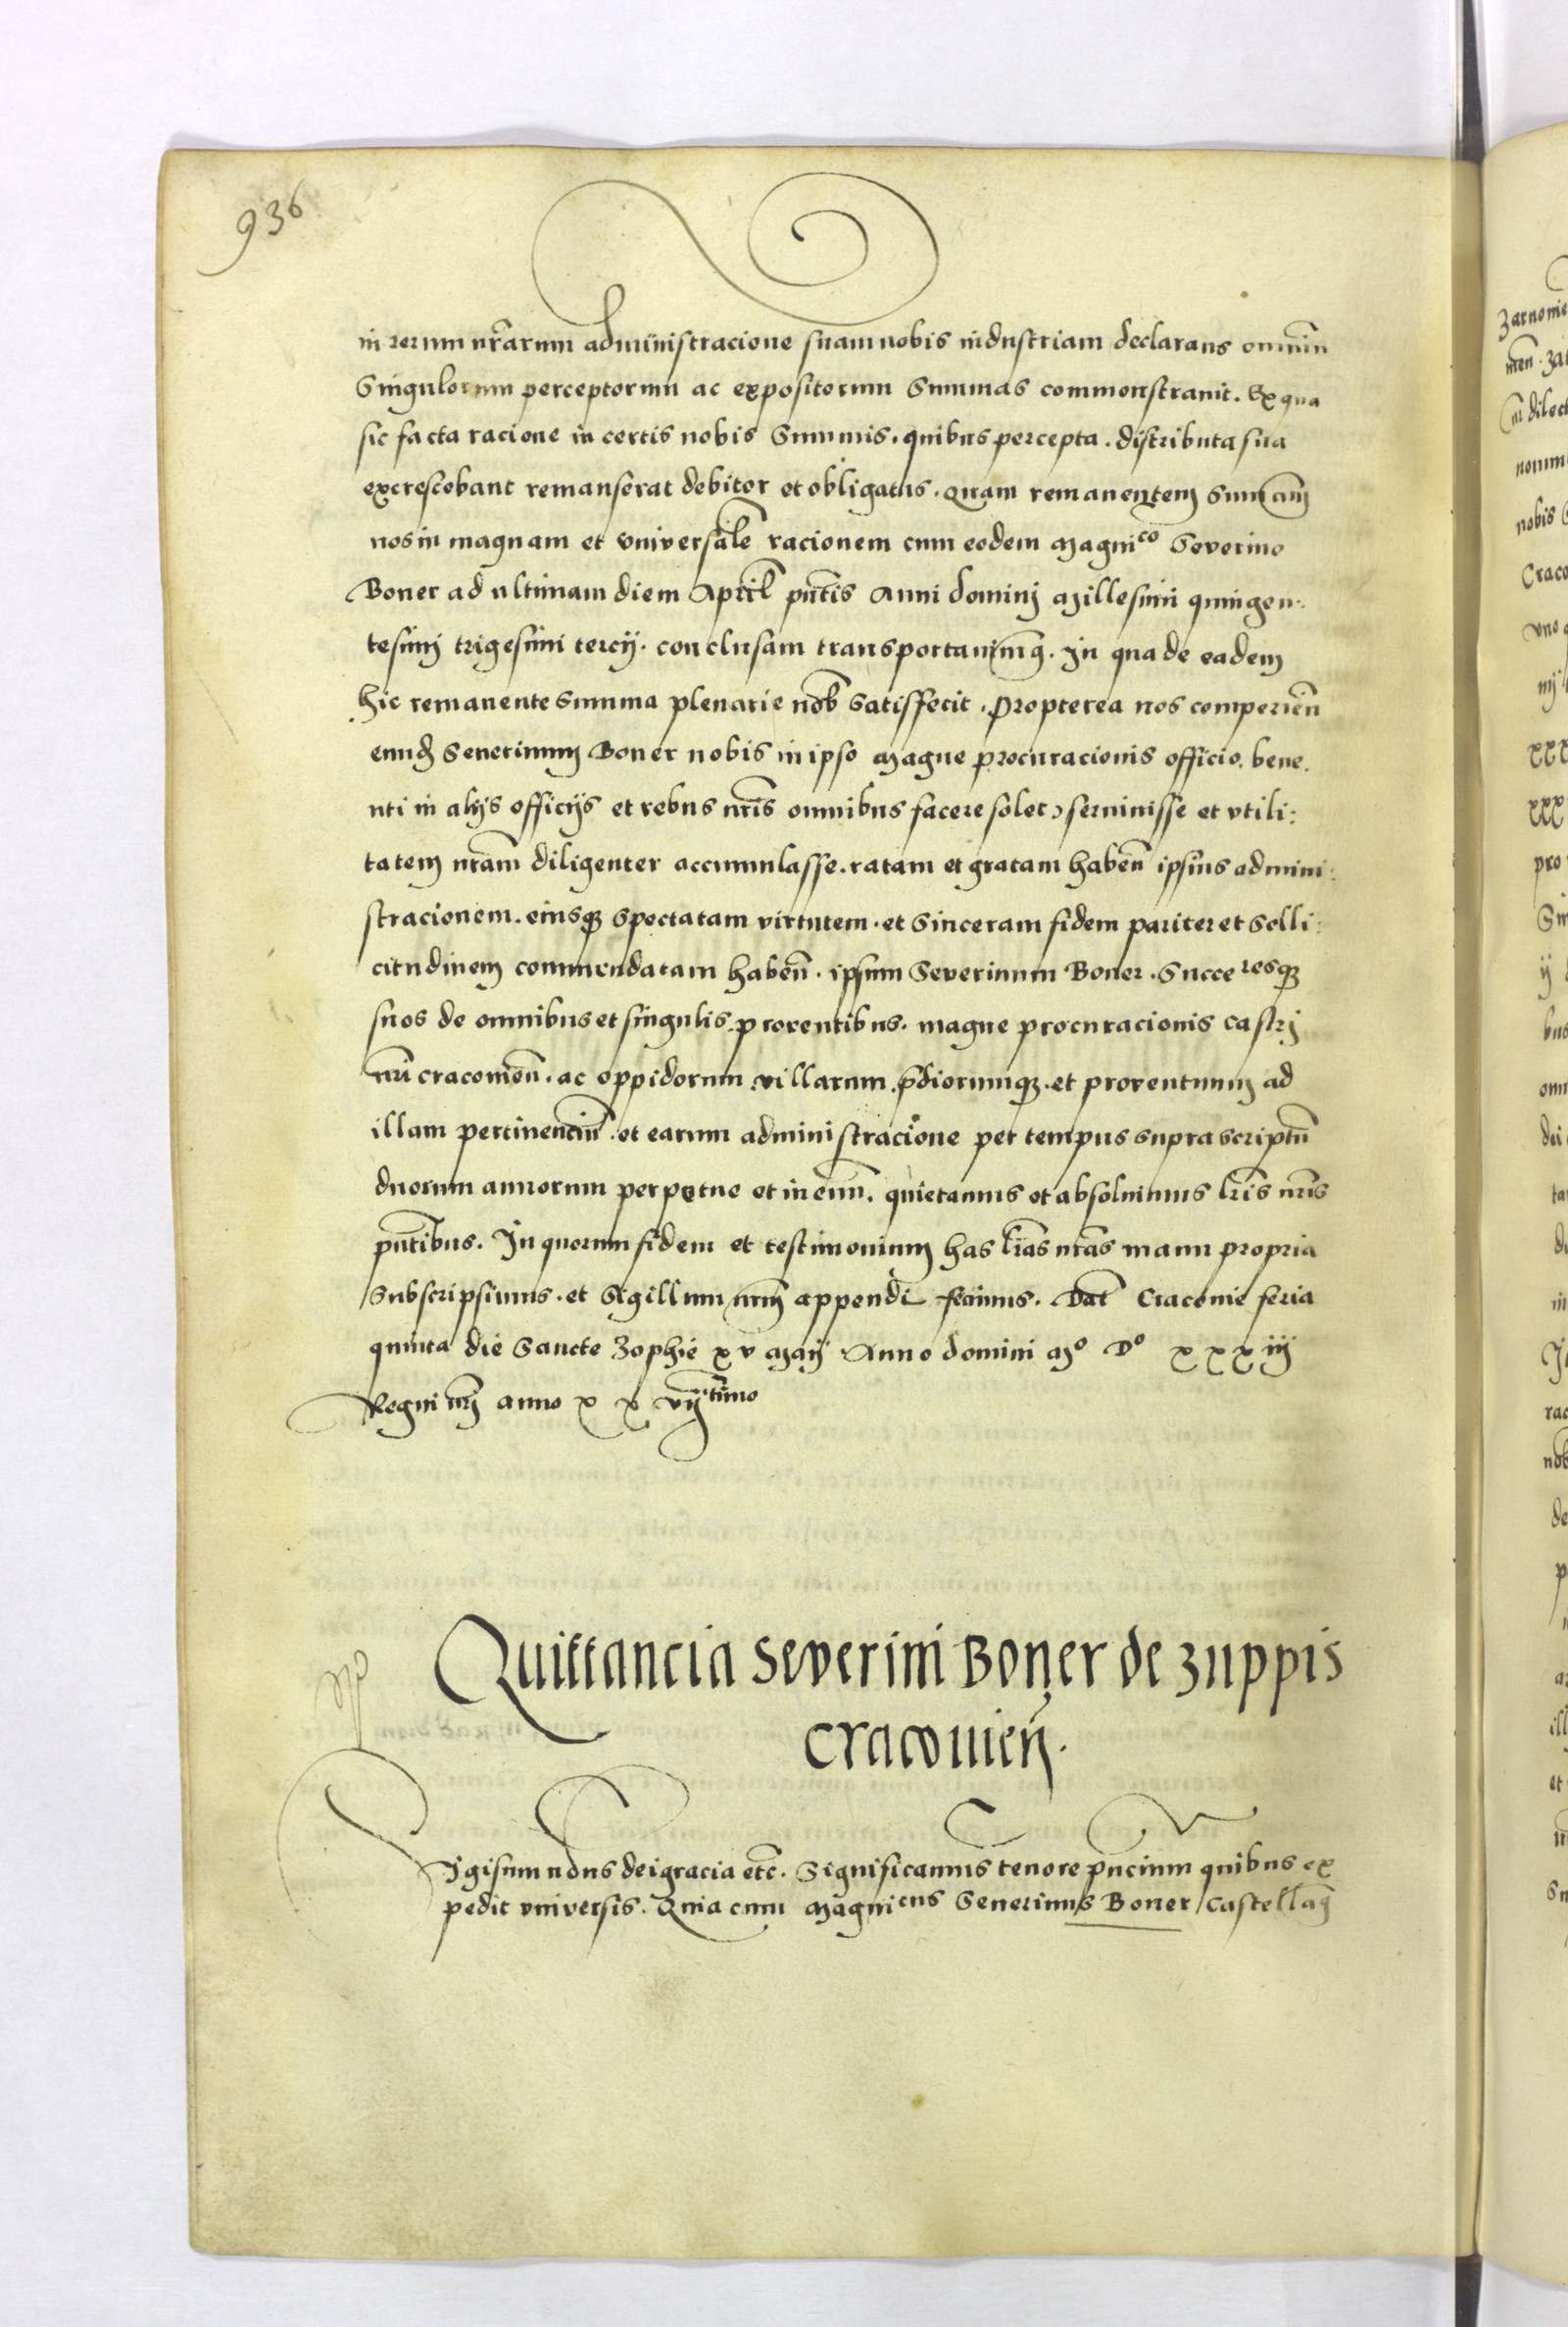 936
in rerum nr̃arum administracione suam nobis industriam declarans omniũ
Singulorum perceptorum ac expositorum Summas commonstravit. Ex qua
sic facta racione in certis nobis Summis. quibus percepta. distributa sua
excrescebant remanserat debitor et obligatus. Quam remanentem Summam
nos in magnam et universalẽ racionem cum eodem Magnico Severino
Boner ad ultimam diem April pñtis Anni domini Millesimi quingen:
tesimi trigesimi tercij. conclusam transportavimꝰ. In qua de eadem
hic remanente Summa plenarie nob̃ Satisffecit. Propterea nos comperieñ
eundẽ Severinum Boner nobis in ipso Magne procuracionis officio. bene.
uti in alijs officijs et rebus nr̃is omnibus facere solet servivisse et utili:
tatem nr̃am diligenter accumulasse. ratam et gratam habeñ ipsius admini:
stracionem. eiusqꝫ Spectatam virtutem. et Sinceram fidem pariter et Solli:
citudinem commendatam habeñ. ipsum Severinum Boner. Succeresqꝫ
suos de omnibus et singulis proventibus. magne procuracionis castri
nr̃i cracovieñ. ac oppidorum villarum. p̃diorumqꝫ. et proventuum ad
illam pertinenciũ. et earum administracione per tempus suprascriptũ
duorum annorum perpetue et in evũ. quietamus et absolvimus lr̃is nr̃is
pñtibus. In quorum fidem et testimonium has lr̃as nr̃as manu propria
Subscripsimus. et Sigillum nr̃m appendi fecimus. Dat̃ Cracovie feria
quinta die Sancte Zophie xv Maij Anno domini Mo Do xxxiij
Regni nr̃j anno x x vijtimo
Quittancia Severini Boner de zuppis
cracovieñ.
Sigismundus dei gracia etc̃. Significamus tenore pñcium quibus ex
pedit universis. Quia cum Magnicus Severinus Boner Castellañ